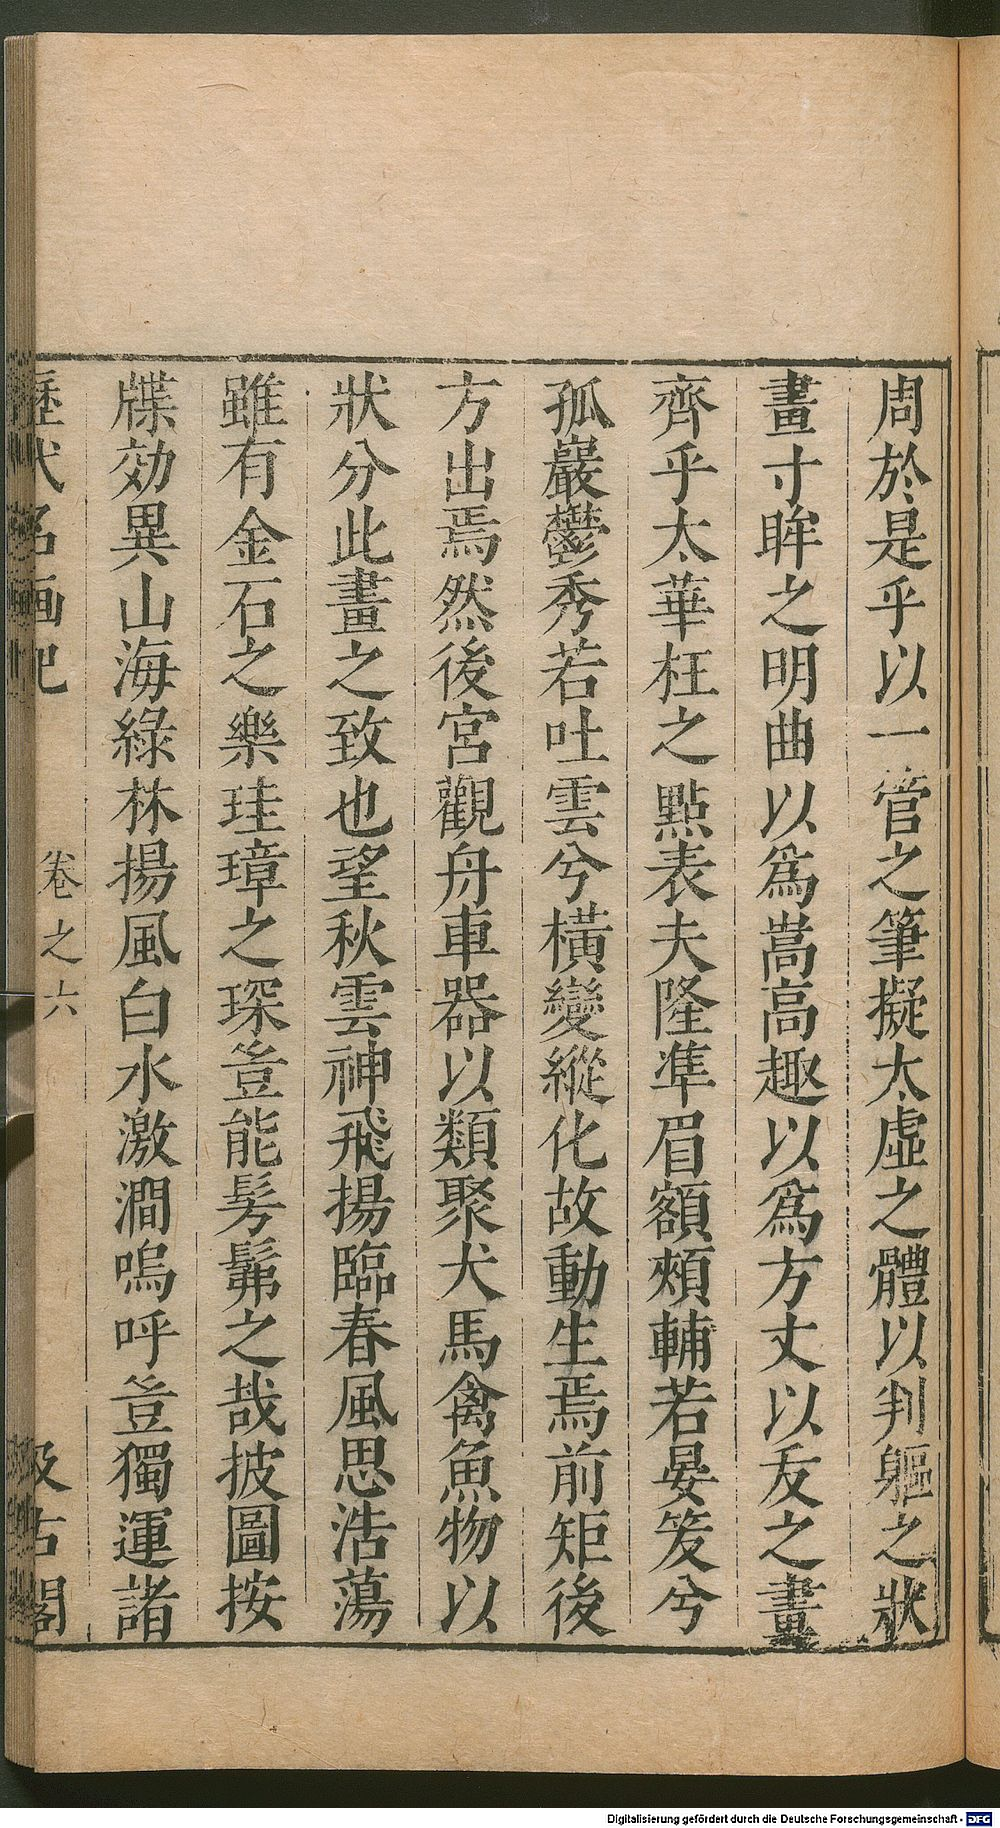 周於是乎以一管之筆擬太虛之體以判軀之狀
畫寸眸之明曲以爲嵩高趣以爲方丈以叐之畫
齊乎太華枉之點表夫隆準眉額頰輔若晏笑兮
孤巖鬱秀若吐雲兮橫變縱化故動生焉前矩後
方出焉然後宮觀舟車器以類聚犬馬禽魚物以
狀分此畫之致也望秋雲神飛揚臨春風思浩蕩
雖有金石之樂珪璋之琛豈能髣髴之哉披圖按
牒効異山海綠林揚風白水激澗嗚呼豈獨運諸
歷代名画記 卷之六 汲古閣
Digitalisierung gefördert durch die Deutsche Forschungsgemeinschaft - DFG